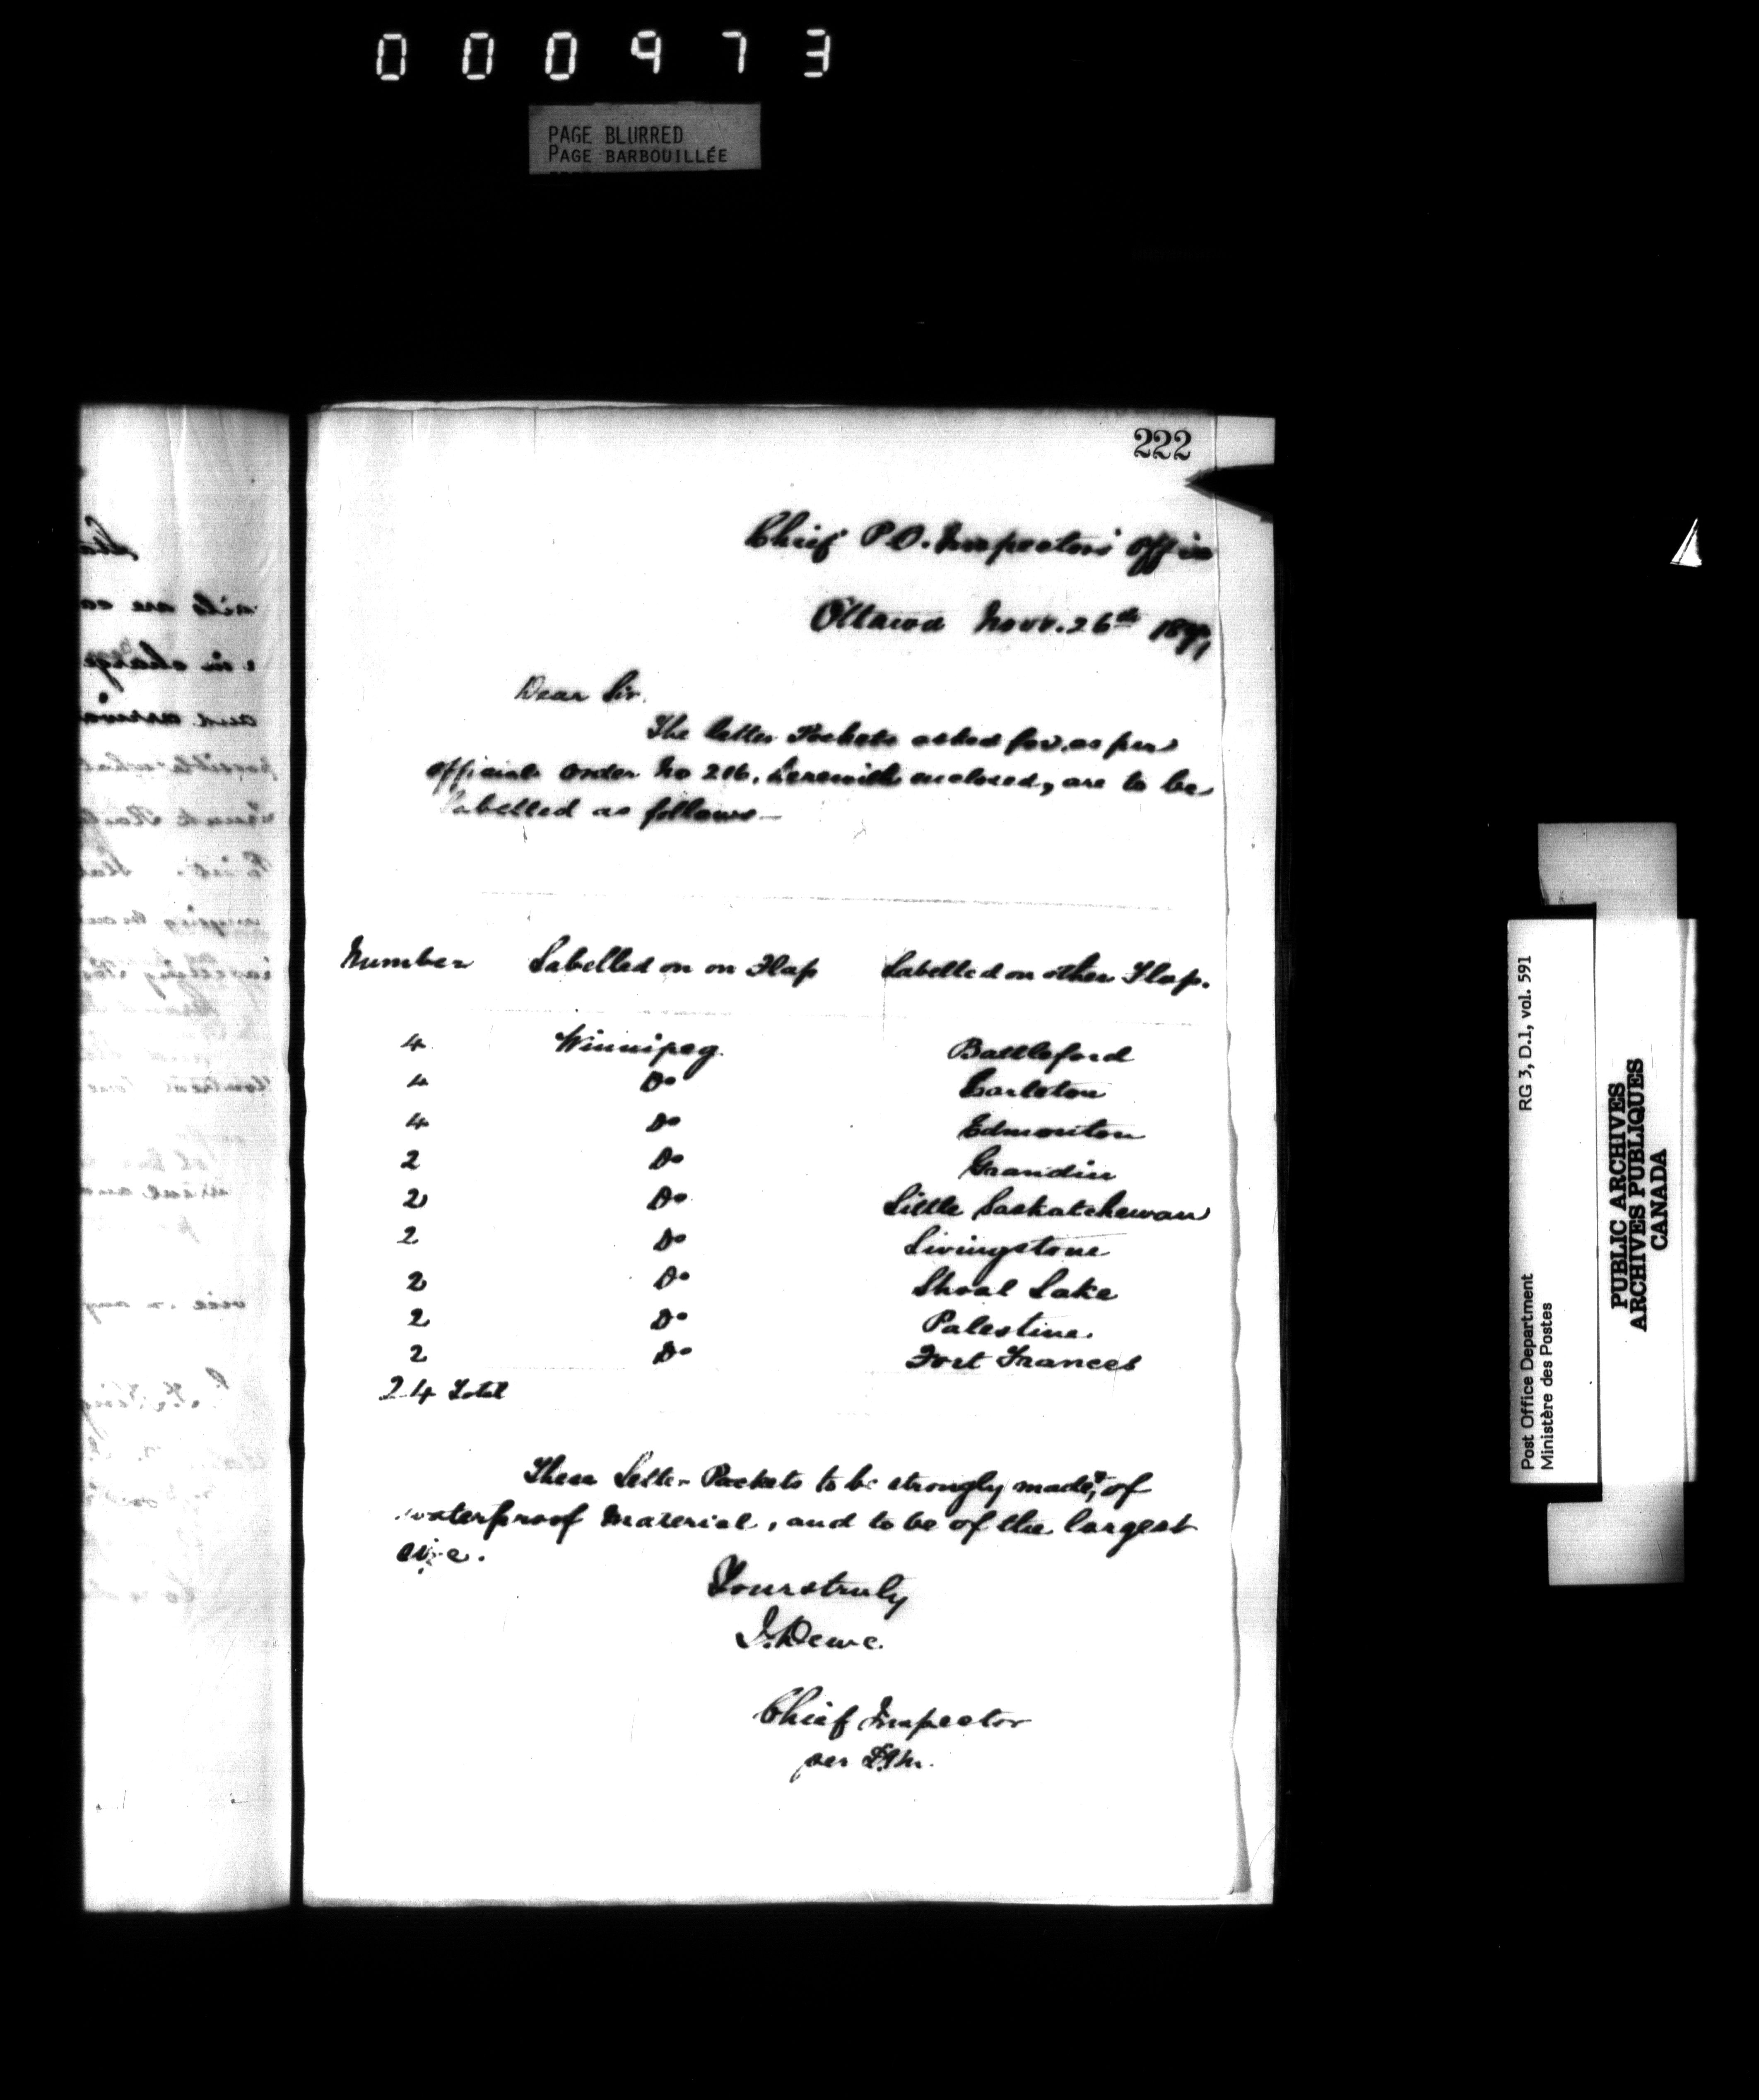 000973
PAGE BLURRED
PAGE BARBOUILLÉE
222
Chief P.O. Inspectors' Office
Ottawa Novr. 26th
Dear Sir.
The letter Packets asked for, as per
official order No 216, herewith enclosed, are to be
labelled as follows—
Number Labelled on on Flap Labelled on other Flap.
4 Winnipeg Battleford
4 Do Carleton
4 Do Edmonton
2 Do Grandin
2 Do Little Saskatchewan
2 Do Livingstone
2 Do Shoal Lake
2 Do Palestine.
2 Do Fort Frances
24 Total
These Letter Packets to be strongly made, of
waterproof material, and to be of the largest
size.
Yours truly
J. Dewe.
Chief Inspector
per
Post Office Department RG 3, D.1, vol. 591
Ministère des Postes
PUBLIC ARCHIVES
ARCHIVES PUBLIQUES
CANADA